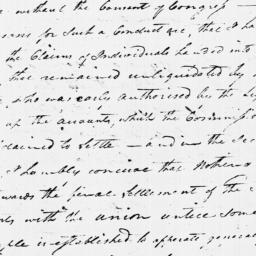 without the Consent of Congress —
for Such a Conduct are, that I ha
the Claims of Individuals handed into
that remained unliquidated by
who was early authorised by the
up the accounts, which the Commiss
to Settle — and on the Sec
I humbly conceive that Nothin
towards the final Settlement of the
with the union unless Some
is established to apporate general